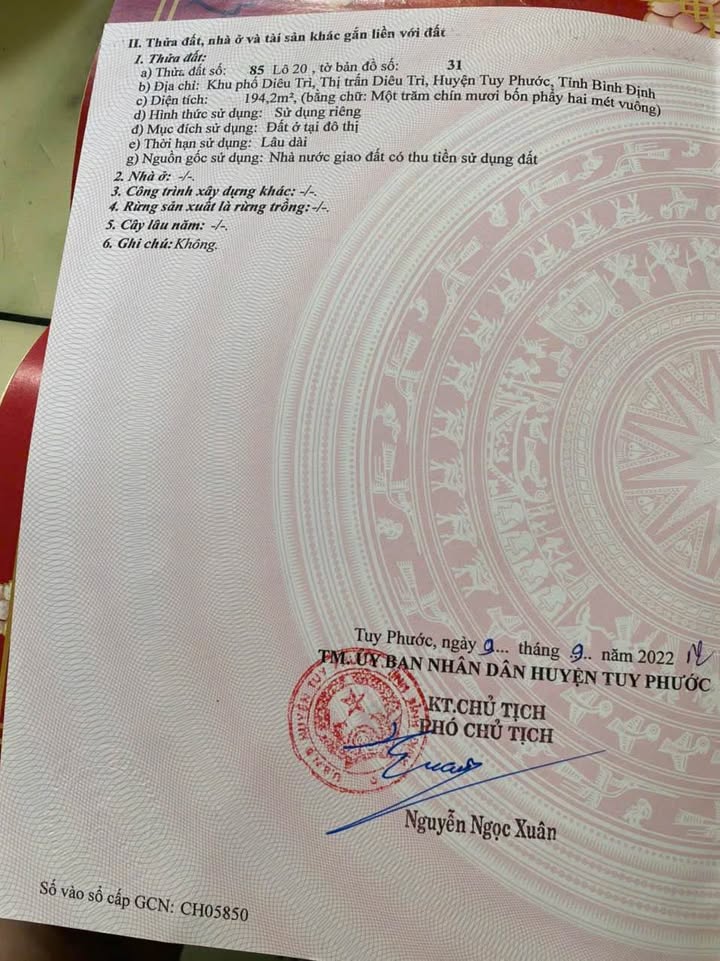 II. Thửa đất, nhà ở và tài sản khác gắn liền với đất
1. Thửa đất:
a) Thửa đất số: 85 Lô 20 , tờ bản đồ số: 31
b) Địa chỉ: Khu phố Diêu Trì, Thị trấn Diêu Trì, Huyện Tuy Phước, Tỉnh Bình Định
c) Diện tích: 194,2m², (bằng chữ: Một trăm chín mươi bốn phẩy hai mét vuông)
d) Hình thức sử dụng: Sử dụng riêng
đ) Mục đích sử dụng: Đất ở tại đô thị
e) Thời hạn sử dụng: Lâu dài
g) Nguồn gốc sử dụng: Nhà nước giao đất có thu tiền sử dụng đất
2. Nhà ở: -/-.
3. Công trình xây dựng khác: -/-.
4. Rừng sản xuất là rừng trồng: -/-.
5. Cây lâu năm: -/-.
6. Ghi chú: Không.
Tuy Phước, ngày 9... tháng 9.. năm 2022
TM. ỦY BAN NHÂN DÂN HUYỆN TUY PHƯỚC
KT.CHỦ TỊCH
PHÓ CHỦ TỊCH
Nguyễn Ngọc Xuân
Số vào sổ cấp GCN: CH05850